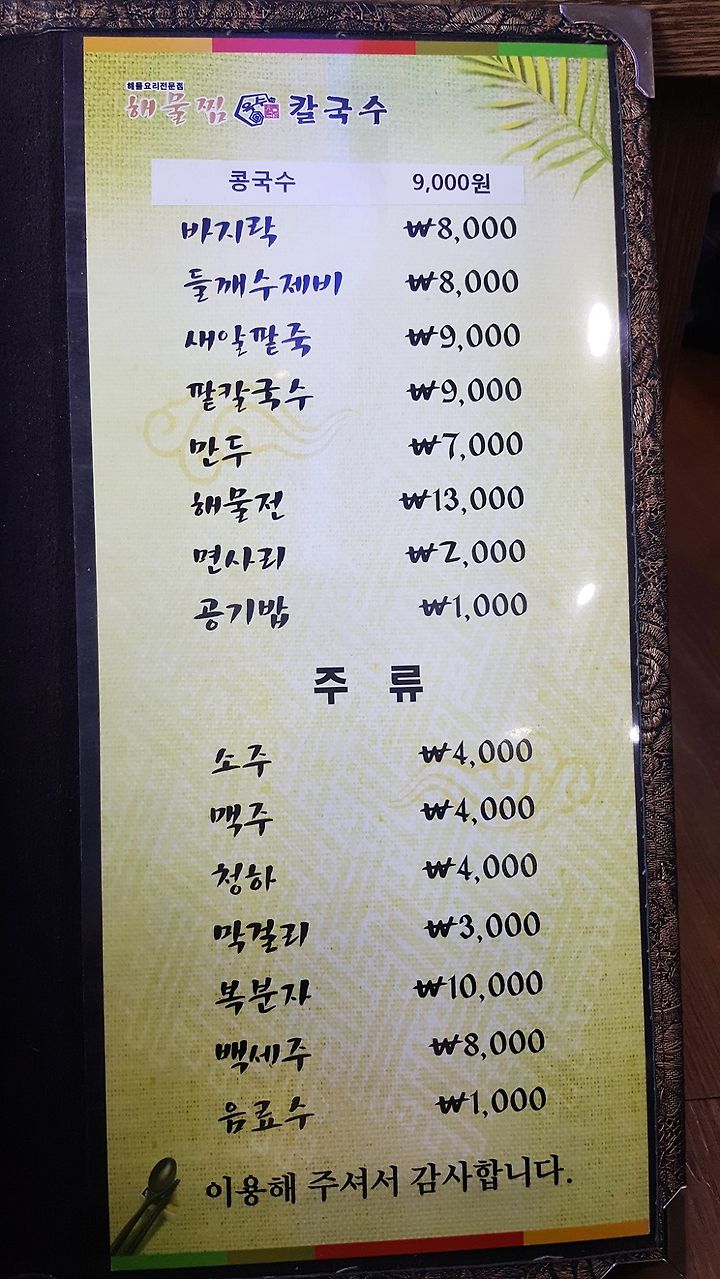 해물요리전문점
해물찜 칼국수
콩국수 9,000원
바지락 ₩8,000
들깨수제비 ₩8,000
새알팥죽 ₩9,000
팥칼국수 ₩9,000
만두 ₩7,000
해물전 ₩13,000
면사리 ₩2,000
공기밥 ₩1,000
주 류
소주 ₩4,000
맥주 ₩4,000
청하 ₩4,000
막걸리 ₩3,000
복분자 ₩10,000
백세주 ₩8,000
음료수 ₩1,000
이용해 주셔서 감사합니다.